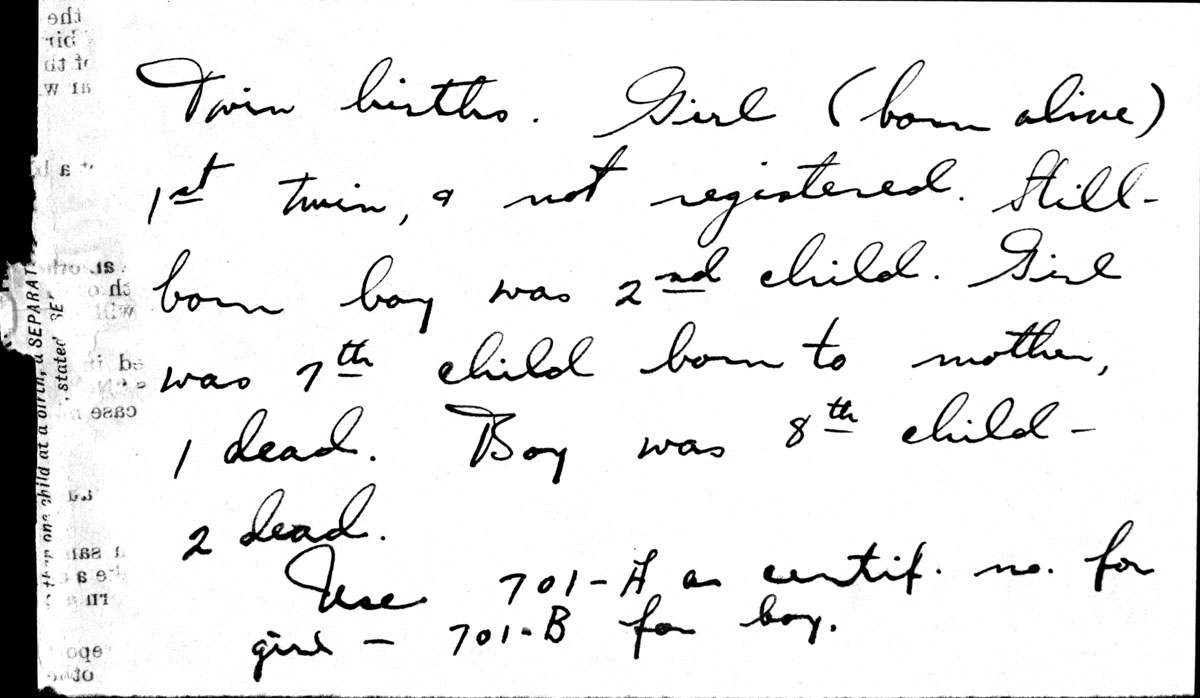 Twin births. Girl (born alive)
1st twin, & not registered. Still-
born boy was 2nd child. Girl
was 7th child born to mother,
1 dead. Boy was 8th child -
2 dead.
Use 701-A as certif. no. for
girl - 701-B for boy.
than one child at a birth, a SEPARAT
stated
case